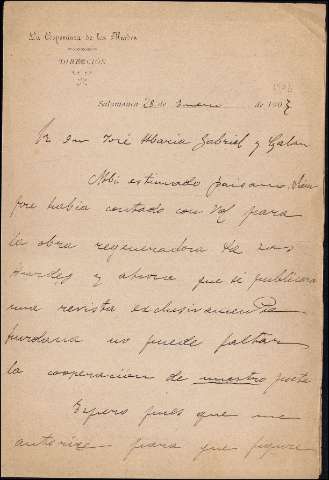 La Esperanza de las Hurdes
DIRECCIÓN
Salamanca 28 de Enero de 1904
1904
Sr Dn José Maria Gabriel y Galan
Mi estimado paisano: Siem
pre había contado con Vd para
la obra regeneradora de las
Hurdes y ahora que se publicara
una revista exclusivamente
hurdana no puede faltar
la cooperacion de nuestro poeta
Espero pues que me
autorize para que figure